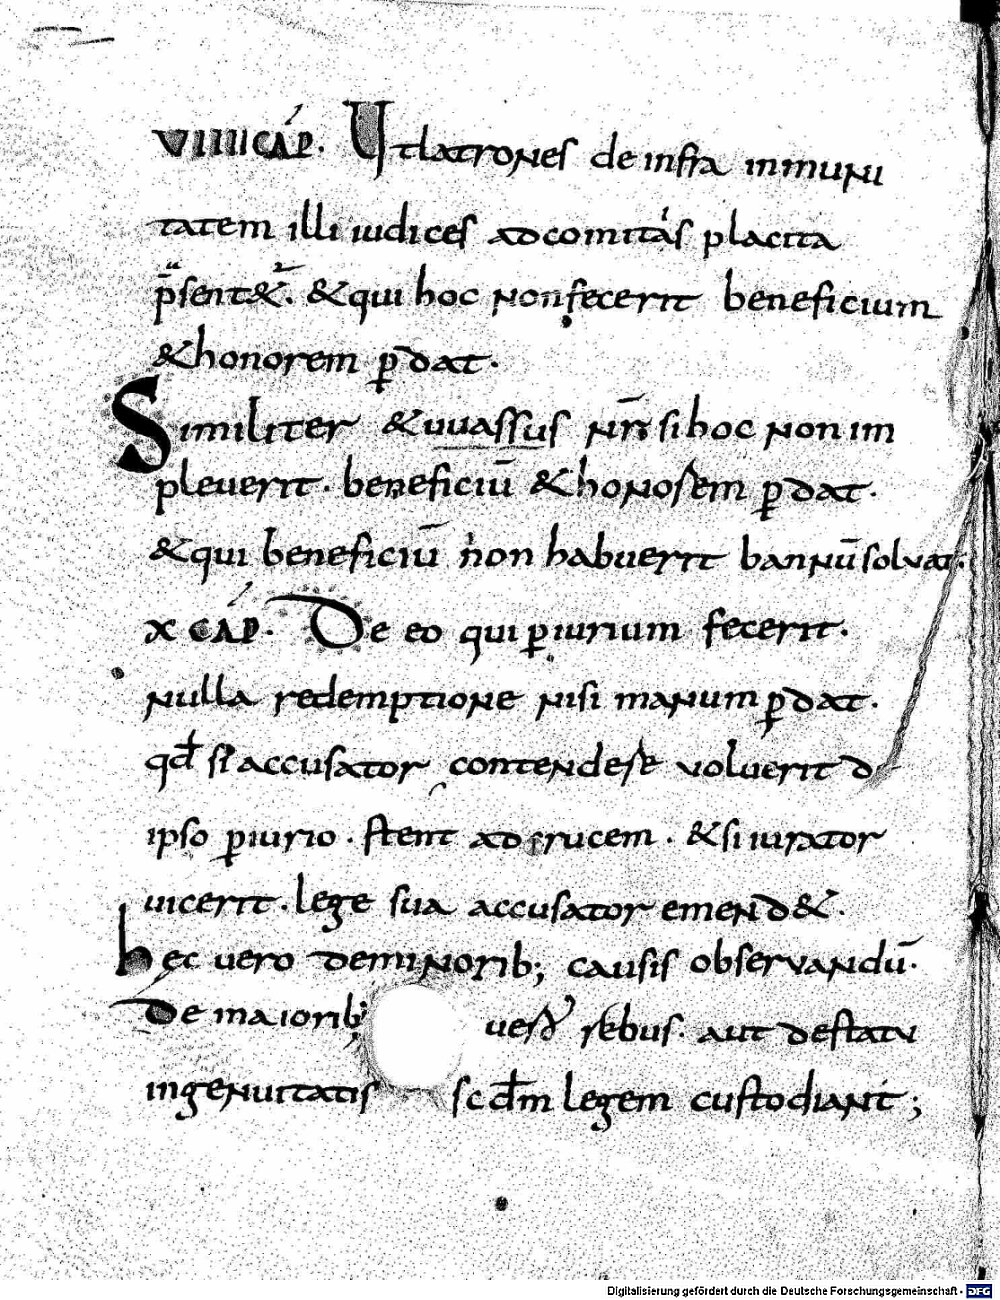 VIIII CAP. Ut latrones de infra inmuni
tatem illi iudices ad comitas placita
p̄sent&ʳ. & qui hoc non fecerit beneficium
& honorem ꝑdat.
Similiter & uuassus nr̄ si hoc non im
pleuerit. beneficiū & honorem ꝑdat.
& qui beneficiū non habuerit bannū soluat;
X CAP. De eo qui ꝑiurium fecerit.
nulla redemptione nisi manum ꝑdat.
qđ si accusator contendere voluerit d
ipso ꝑiurio. stent ad crucem. & si iurator
uicerit. lege sua accusator emend&.
hec uero de minorib; causis observandū.
De maiorib; uero rebus. aut de statu
ingenuitatis scđm legem custodiant;
Digitalisierung gefördert durch die Deutsche Forschungsgemeinschaft - DFG